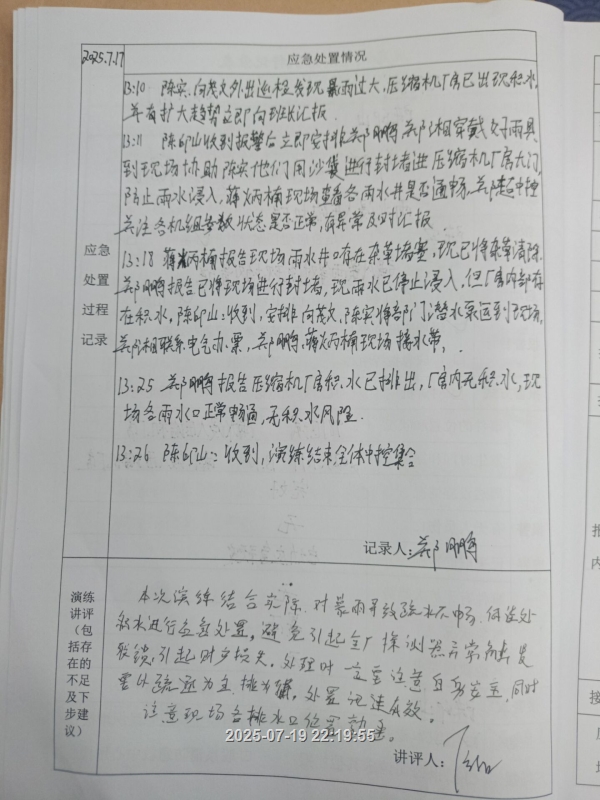 2025.7.17
应急处置情况
13:10 陈实、向茂文外出巡检发现暴雨过大,压缩机厂房已出现积水,
并有扩大趋势立即向班长汇报.
13:11 陈印山收到报警后立即安排郑鹏 相穿戴好雨具
到现场协助陈实他们用沙袋进行封堵进压缩机厂房大门,
防止雨水浸入,蒋炳楠现场查看各雨水井是否通畅, 中控
关注各机组参数、状态是否正常,有异常及时汇报.
应急
处置
过程
记录
13:18 蒋炳楠报告现场雨水井口存在杂草堵塞,现已将杂草清除.
郑鹏报告已将现场进行封堵,现雨水已停止浸入,但厂房内部存
在积水,陈印山:收到,安排向茂文,陈实将部门潜水泵运到现场,
相联系电气办票,郑鹏、蒋炳楠现场接水带,
13:25 郑鹏报告压缩机厂房积水已排出,厂房内无积水,现
场各雨水口正常畅通,无积水风险.
13:26 陈印山:收到,演练结束全体中控集合
记录人: 郑鹏
演练
讲评
(包
括存
在的
不足
及下
步建
议)
本次演练结合实际,对暴雨导致疏水不畅、 处
积水进行应急处置,避免引起全厂探测器异常 发
联锁,引起财产损失.处理时一定要注意自身安全,同时
要以疏通为主,排为辅,处置迅速有效.
注意现场各排水口位置
2025-07-19 22:19:55
讲评人: